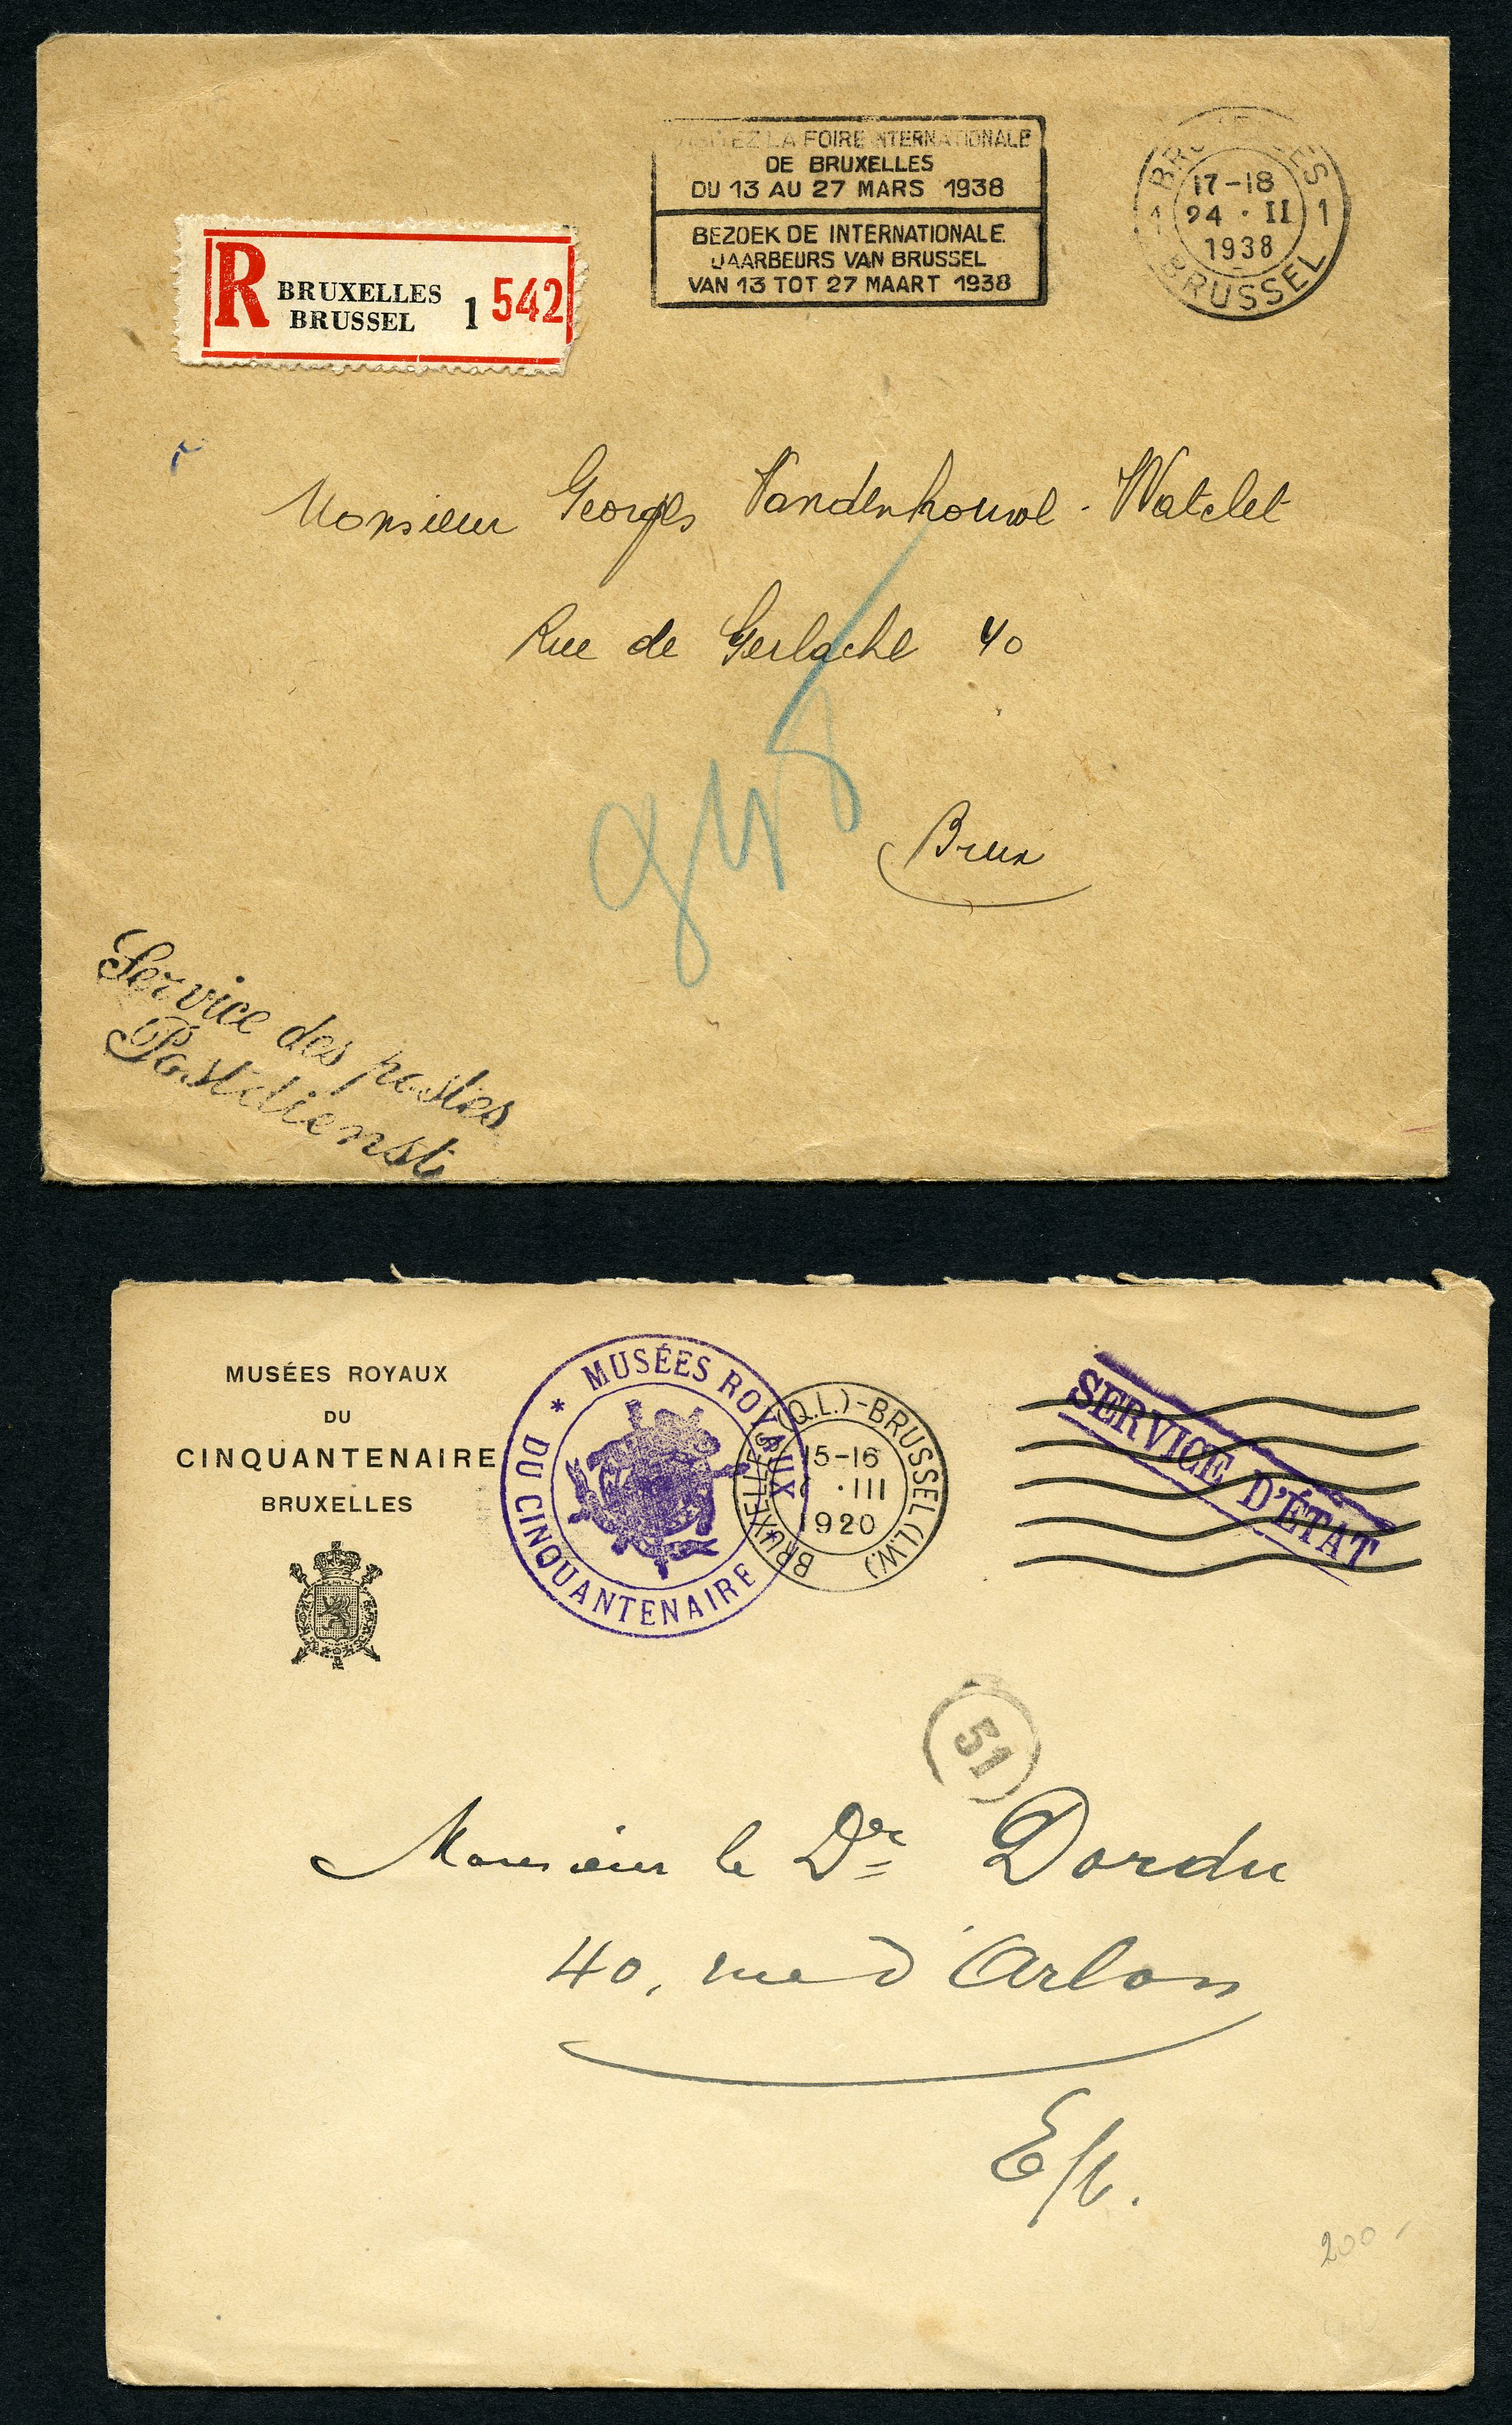 VISITEZ LA FOIRE INTERNATIONALE
DE BRUXELLES
DU 13 AU 27 MARS 1938
BEZOEK DE INTERNATIONALE
JAARBEURS VAN BRUSSEL
VAN 13 TOT 27 MAART 1938
BRUXELLES
17-18
1 24 · II 1
1938
BRUSSEL
R BRUXELLES
BRUSSEL 1 542
Monsieur Georges Vandenhouwe - Watelet
Rue de Gerlache 40
Brux
Service des postes
Postdienst
MUSÉES ROYAUX
DU
CINQUANTENAIRE
BRUXELLES
* MUSÉES ROYAUX *
DU CINQUANTENAIRE
BRUXELLES (Q.L.)-BRUSSEL (L.W.)
15-16
· III
1920
SERVICE D'ÉTAT
51
Monsieur le Dr Dordu
40, rue d'Arlon
E/V.
200 -